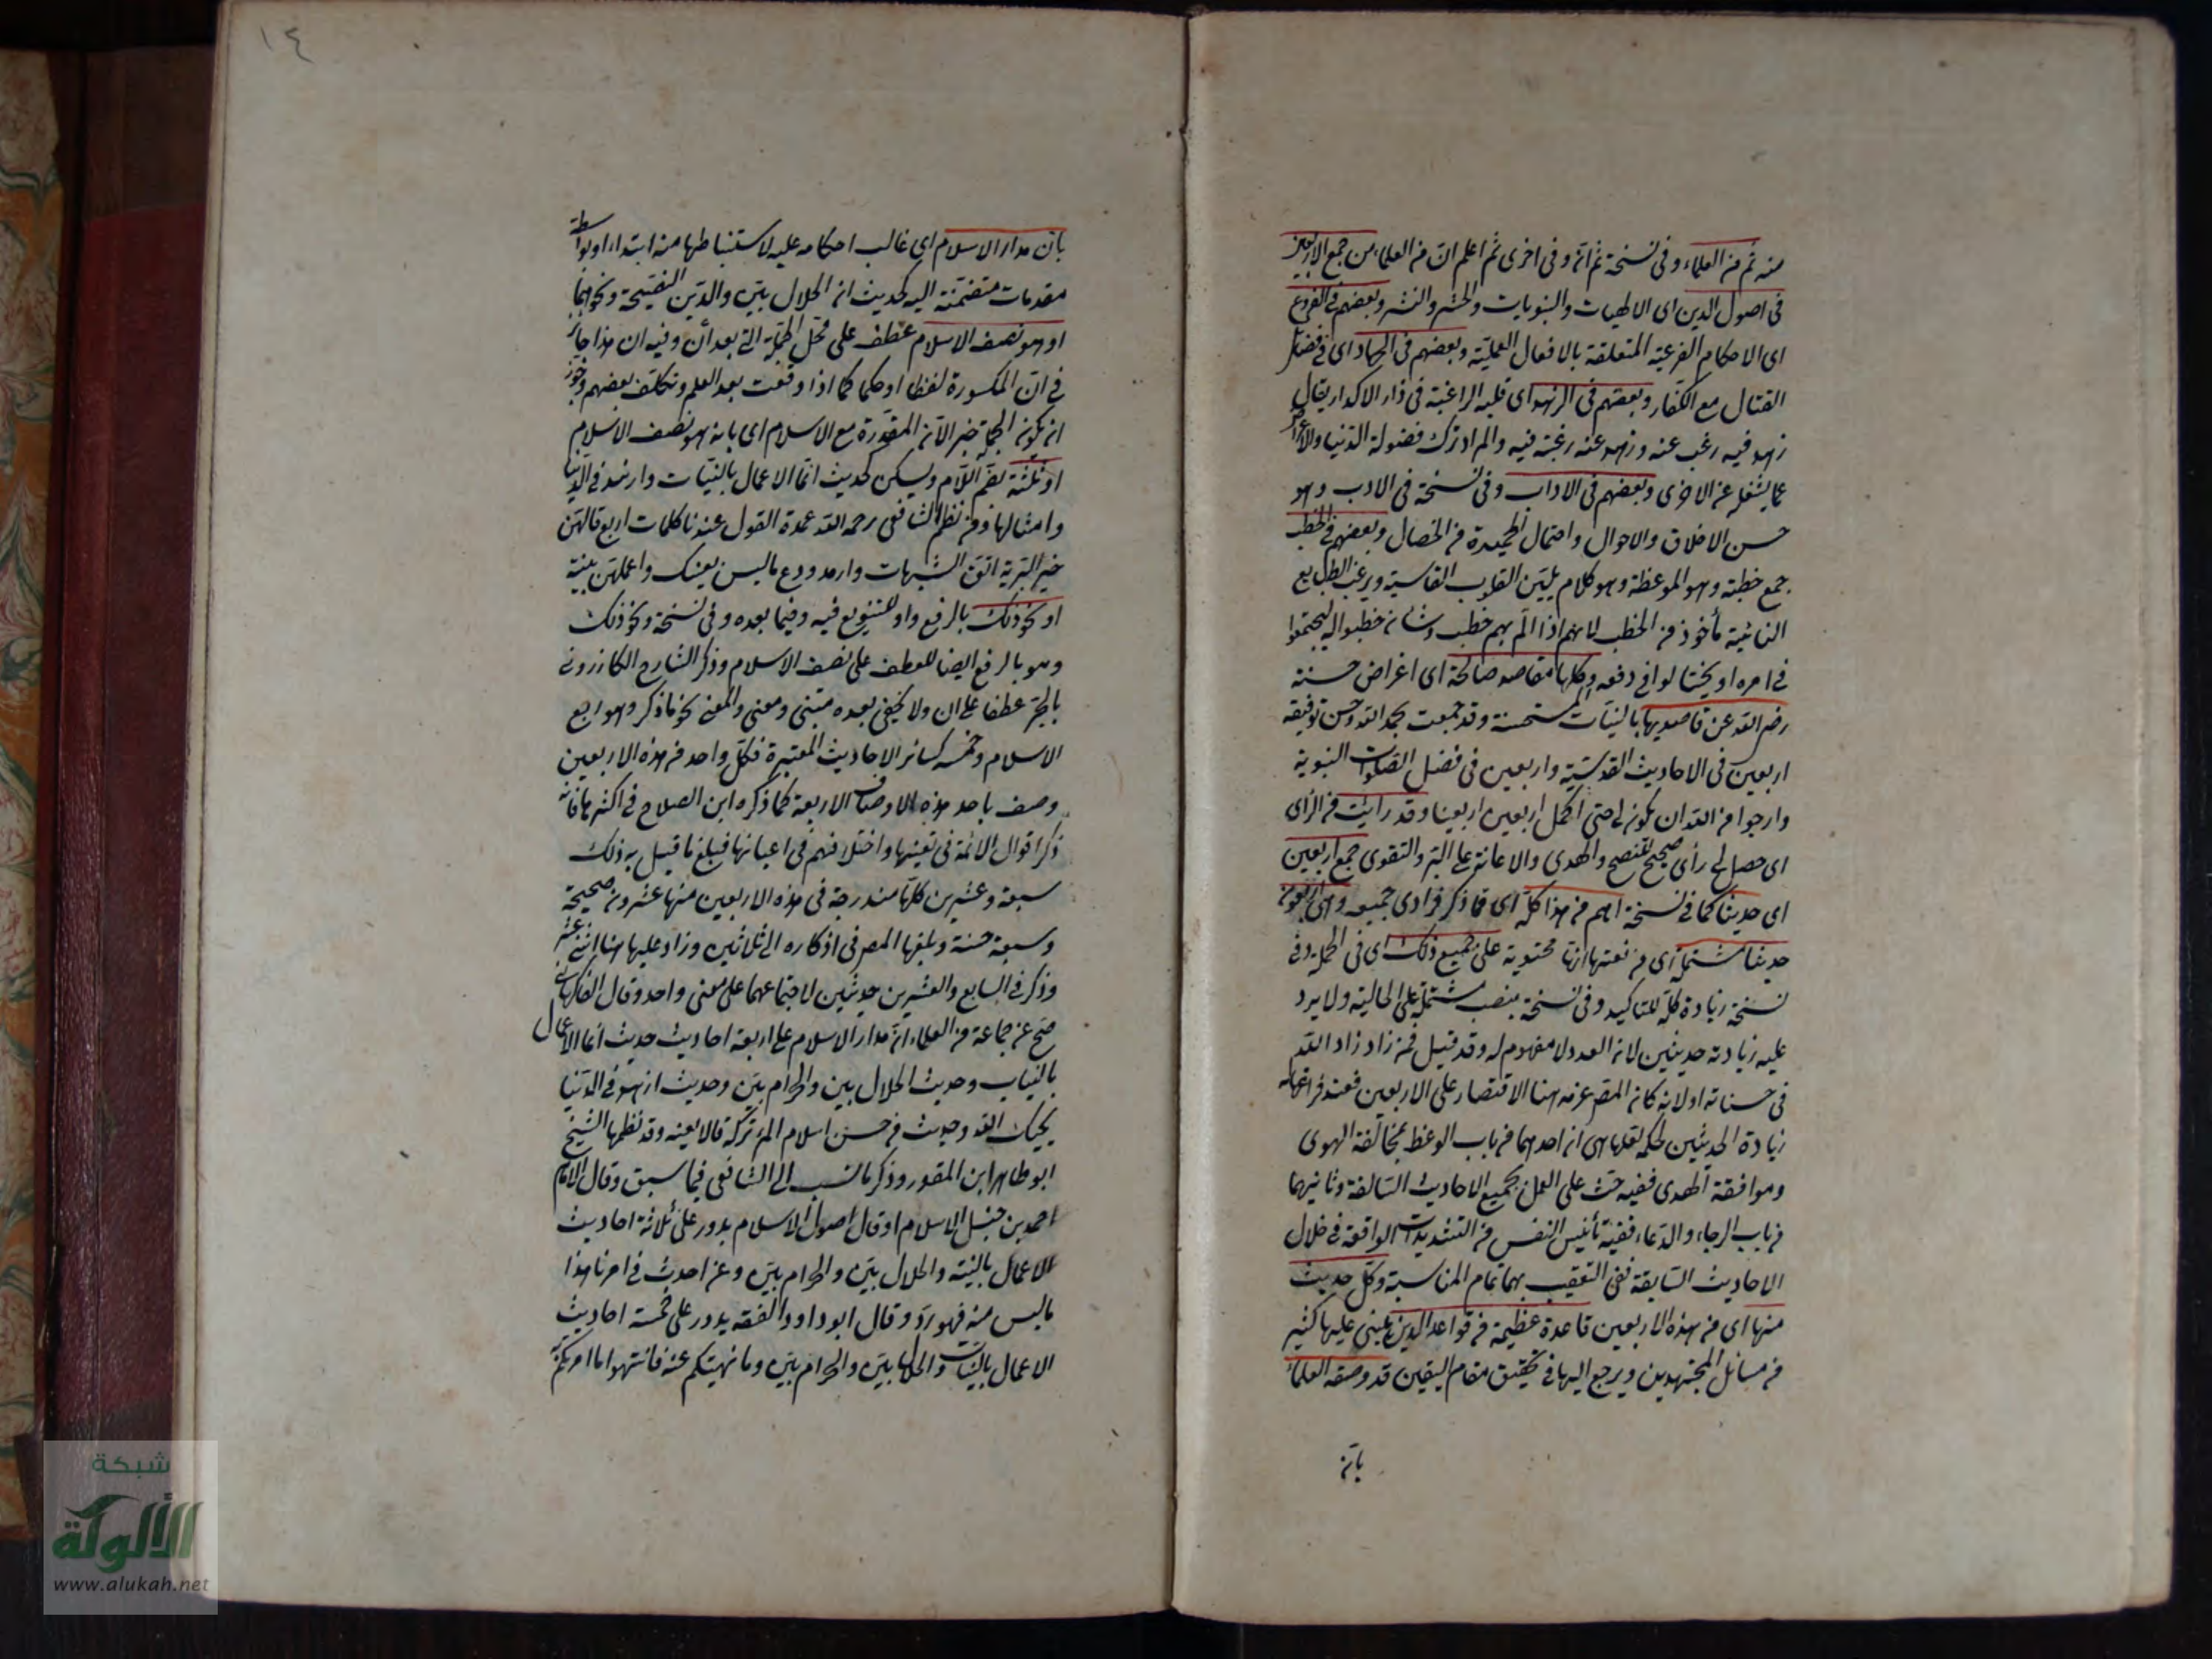 منه ثم من العلماء وفى نسخة ثم انه وفى اخرى ثم اعلم ان من العلماء من جمع الاربعين
فى اصول الدين اى الالهيات والنبويات والحشر والنشر وبعضهم فى الفروع
اى الاحكام الفرعية المتعلقة بالافعال العملية وبعضهم فى الجهاد اى فى فضائل
القتال مع الكفار وبعضهم فى الزهد اى قلية الراغبة فى دار الاكدار يقال
زهد فيه رغب عنه وزهد عنه رغبة فيه والمراد ترك فضولة الدنيا والاعراض
عما يشغل عن الاخرى وبعضهم فى الاداب وفى نسخة فى الادب وهو
حسن الاخلاق والاحوال واحتمال الحميدة من الخصال وبعضهم فى الخطب
جمع خطبة وهو الموعظة وهو كلام يلين القلوب القاسية ويرغب الطبايع
النائية مأخوذ من الخطب لانهم اذا الم بهم خطب وشان خطبوا له ليجتمعوا
فى امره او يحتالوا فى دفعه وكلها مقاصد صالحة اى اغراض حسنة
رضى الله عن قاصديها بالنيات المستحسنة وقد جمعت بحمد الله وحسن توفيقه
اربعين فى الاحاديث القدسية واربعين فى فضل الصلوات النبوية
وارجوا من الله ان يكون لى حتى اكمل اربعين اربعينا وقد رايت من الراى
اى حصل لى رأى صحيح للنصح والهدى والاعانة على البر والتقوى جمع اربعين
اى حديثا كما فى نسخة اهم من هذا كله اى مما ذكر فرادى جميعه وهى اربعون
حديثا مشتملة اى من نعتها انها محتوية على جميع ذلك اى فى الجملة وفى
نسخة زيادة كله للتاكيد وفى نسخة بنصب مشتملة على الحالية ولا يرد
عليه زيادة حديثين لان العدد لا مفهوم له وقد قيل فمن زاد زاد الله
فى حسناته اولانه كان المص عزمه هنا الاقتصار على الاربعين فعند فراغها له
زيادة الحديثين لحكمة لعلها هى ان احدهما من باب الوعظ بمخالفة الهوى
وموافقة الهدى ففيه حث على العمل بجميع الاحاديث السالفة وثانيهما
من باب الرجاء والدعاء ففيه تأنيس النفس من التشديدات الواقعة فى خلال
الاحاديث السابقة ففى التعقيب بهما تمام المناسبة وكل حديث
منها اى من هذه الاربعين قاعدة عظيمة من قواعد الدين يبنى عليها كثير
من مسائل المجتهدين ويرجع اليها فى تحقيق مقام اليقين قد وصفه العلماء
بان
١٤
بان مدار الاسلام اى غالب احكامه عليه لاستنباطها منه ابتداء او بواسطة
مقدمات متضمنة اليه كحديث ان الحلال بين والدين النصيحة ونحوهما
او هو نصف الاسلام عطف على محل الجملة التى بعد أن وفيه ان هذا جائز
فى ان المكسورة لفظا او حكما كما اذا وقعت بعد العلم وتكلف بعضهم وجوز
ان يكون الجملة خبر الان المقدرة مع الاسلام اى بانه هو نصف الاسلام
او ثلثه بضم اللام ويسكن كحديث انما الاعمال بالنيات وازهد فى الدنيا
وامثالها ومن نظم الشافعى رحمه الله عمدة القول عندنا كلمات اربع قالهن
خير البرية اتق الشبهات وازهد ودع ماليس يعينك واعملهن بنية
او نحو ذلك بالرفع واو للتنويع فيه وفيما بعده وفى نسخة ونحو ذلك
وهو بالرفع ايضا للعطف على نصف الاسلام وذكر الشارح الكازرونى
بالجر عطفا على ان ولا يخفى بعده مبنى ومعنى والمعنى نحو ما ذكر وهو اربع
الاسلام وخمسه كسائر الاحاديث المعتبرة فكل واحد من هذه الاربعين
وصف باحد هذه الاوصاف الاربعة كما ذكره ابن الصلاح فى اكثرها فانه
ذكر اقوال الائمة فى تعيينها واختلافهم فى اعيانها فبلغ ما قيل به ذلك
سبعة وعشرين كلها مندرجة فى هذه الاربعين منها عشرون صحيحة
وسبعة حسنة وبلغها المص فى اذكاره الى ثلاثين وزاد عليها هنا اثنى عشر
وذكر فى السابع والعشرين حديثين لاجتماعهما على معنى واحد وقال الفاكهانى
صح عن جماعة من العلماء ان مدار الاسلام على اربعة احاديث حديث انما الاعمال
بالنيات وحديث الحلال بين والحرام بين وحديث ازهد فى الدنيا
يحبك الله وحديث من حسن اسلام المرء تركه مالا يعنيه وقد نظمها الشيخ
ابو طاهر ابن المقور وذكر ما نسب الى الشافعى فيما سبق وقال الامام
احمد بن حنبل الاسلام او قال اصول الاسلام يدور على ثلاثة احاديث
الاعمال بالنية والحلال بين والحرام بين ومن احدث فى امرنا هذا
ماليس منه فهو رد وقال ابو داود الفقه يدور على خمسة احاديث
الاعمال بالنيات والحلال بين والحرام بين وما نهيتكم عنه فانتهوا وما امرتكم به
شبكة
الألوكة
www.alukah.net